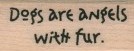 Dogs are angels
with fur.